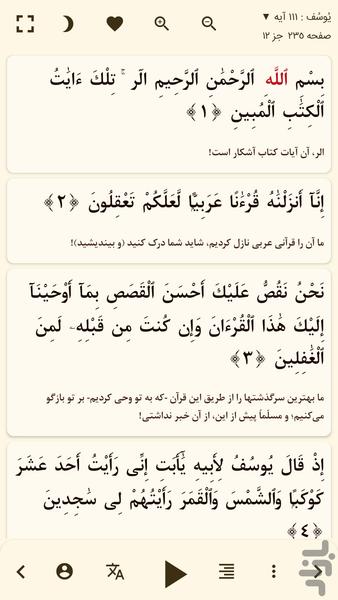 یوسُف : ۱۱۱ آیه ▼
صفحه ۲۳۵ جز ۱۲
بِسْمِ ٱللَّهِ ٱلرَّحْمَٰنِ ٱلرَّحِيمِ الٓر ۚ تِلْكَ ءَايَٰتُ
ٱلْكِتَٰبِ ٱلْمُبِينِ ﴿١﴾
الر، آن آیات کتاب آشکار است!
إِنَّآ أَنزَلْنَٰهُ قُرْءَٰنًا عَرَبِيًّا لَّعَلَّكُمْ تَعْقِلُونَ ﴿٢﴾
ما آن را قرآنی عربی نازل کردیم، شاید شما درک کنید (و بیندیشید)!
نَحْنُ نَقُصُّ عَلَيْكَ أَحْسَنَ ٱلْقَصَصِ بِمَآ أَوْحَيْنَآ
إِلَيْكَ هَٰذَا ٱلْقُرْءَانَ وَإِن كُنتَ مِن قَبْلِهِۦ لَمِنَ
ٱلْغَٰفِلِينَ ﴿٣﴾
ما بهترین سرگذشتها را از طریق این قرآن -که به تو وحی کردیم- بر تو بازگو
می‌کنیم؛ و مسلّماً پیش از این، از آن خبر نداشتی!
إِذْ قَالَ يُوسُفُ لِأَبِيهِ يَٰٓأَبَتِ إِنِّى رَأَيْتُ أَحَدَ عَشَرَ
كَوْكَبًا وَٱلشَّمْسَ وَٱلْقَمَرَ رَأَيْتُهُمْ لِى سَٰجِدِينَ
﴿٤﴾
بازار